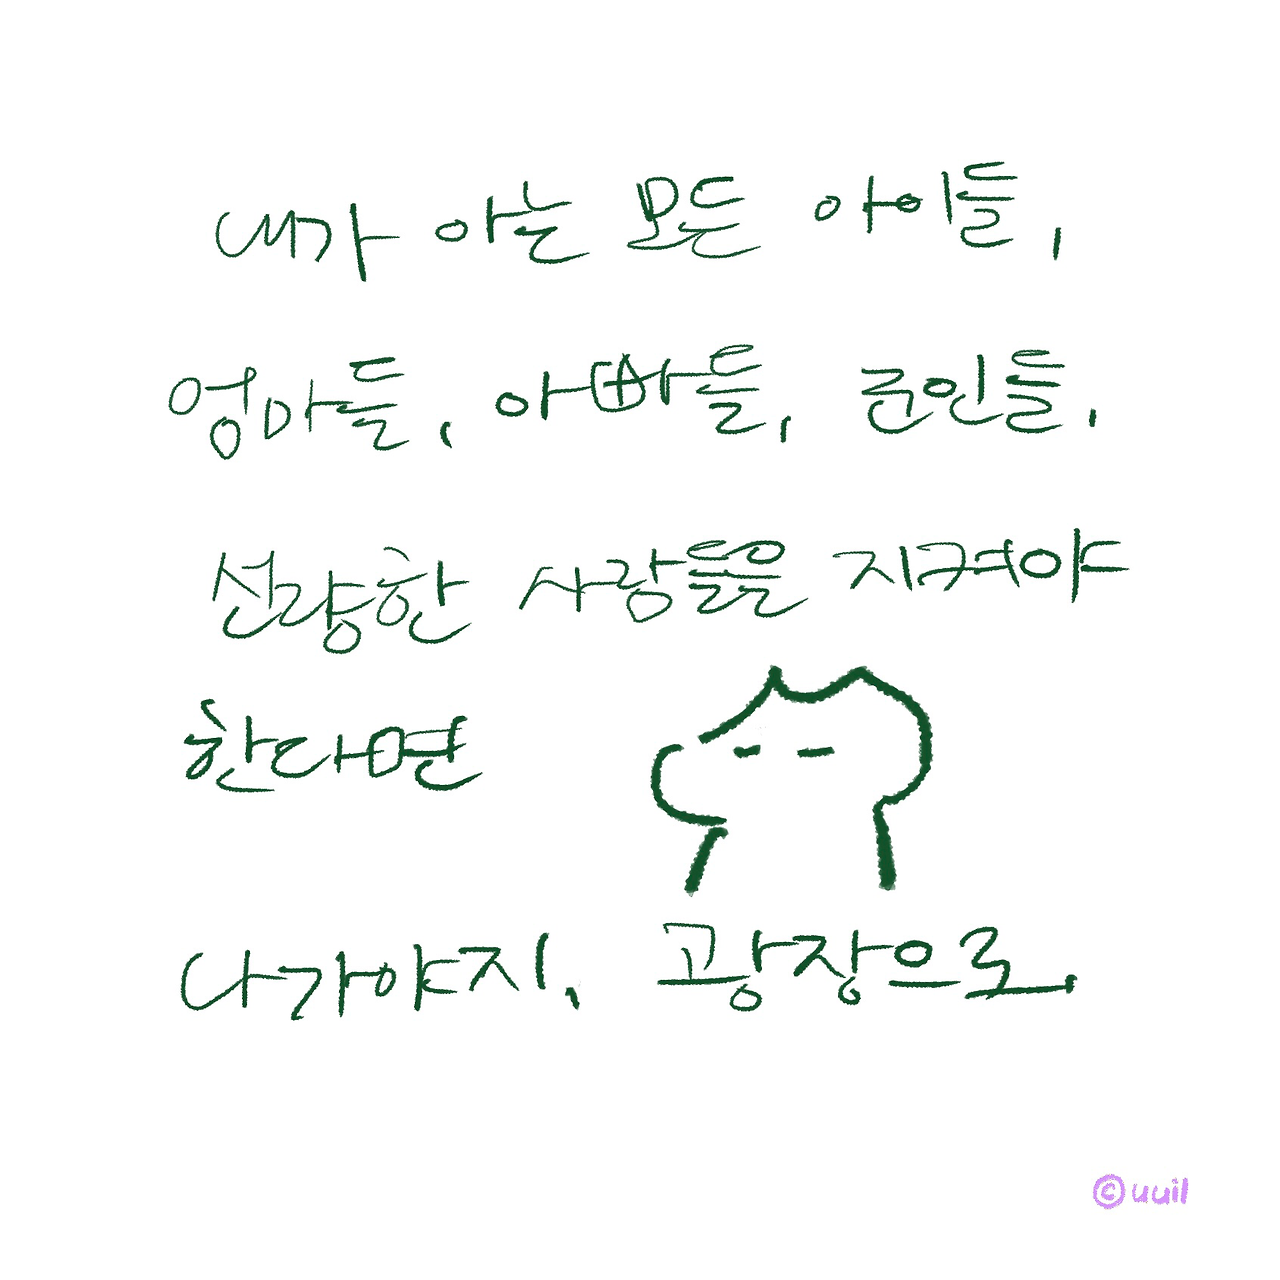 내가 아는 모든 아이들,
엄마들, 아빠들, 군인들,
선량한 사람들을 지켜야
한다면
나가야지, 광장으로.
©uuil